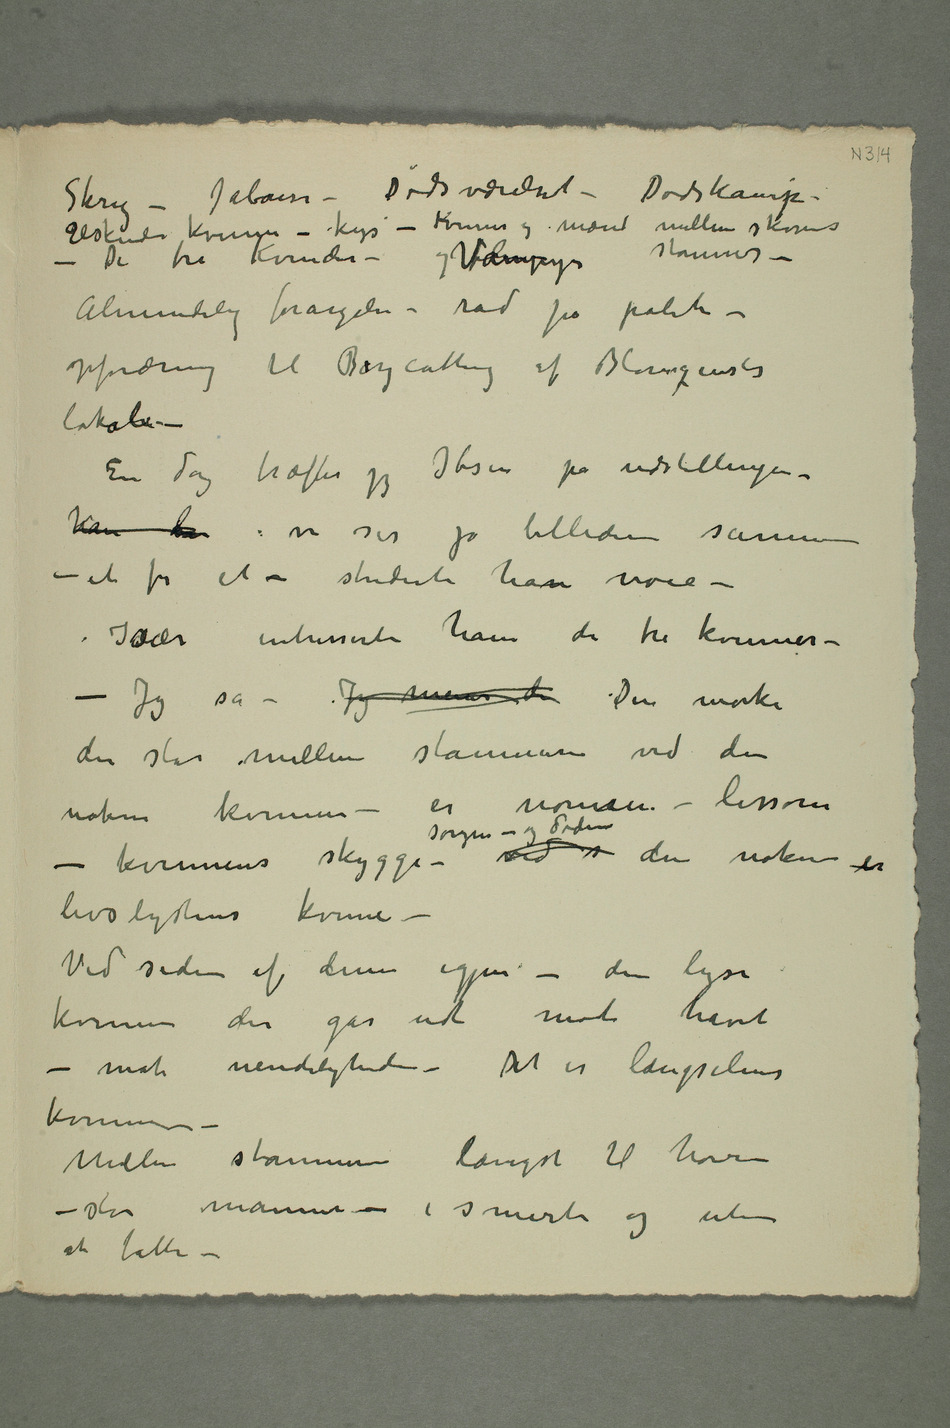 N 314
Skrig – Jalousi – Dødsværelset – Dødskamp –
elskende kvinne – kys – Kvinner og mænd mellem skovens
– De tre Kvinder – og Vampyr stammer –
Almindelig forargelse – råd på politi –
opfordring til Boycotting af Blomqvists
lokale –
En dag træffer jeg Ibsen på udstillingen –
Han : vi ser på billedene sammen
– et for et – studerte han nøie –
Især intresserte ham de tre kvinner –
– Jeg sa – Jeg mener den Den mørke
der står mellem stammerne ved den
nøkne kvinnen – er nonnen – lissom
sorgen – og døden
– kvinnens skygge – ved s den nøkne er
livslystens kvinne –
Ved siden af denne igjen – den lyse
kvinnen der går ud mod havet
– mod uendeligheden – Det er længselens
kvinnen –
Mellem stammerne længst til høire
– står mannen – i smerte og uten
at fatte –